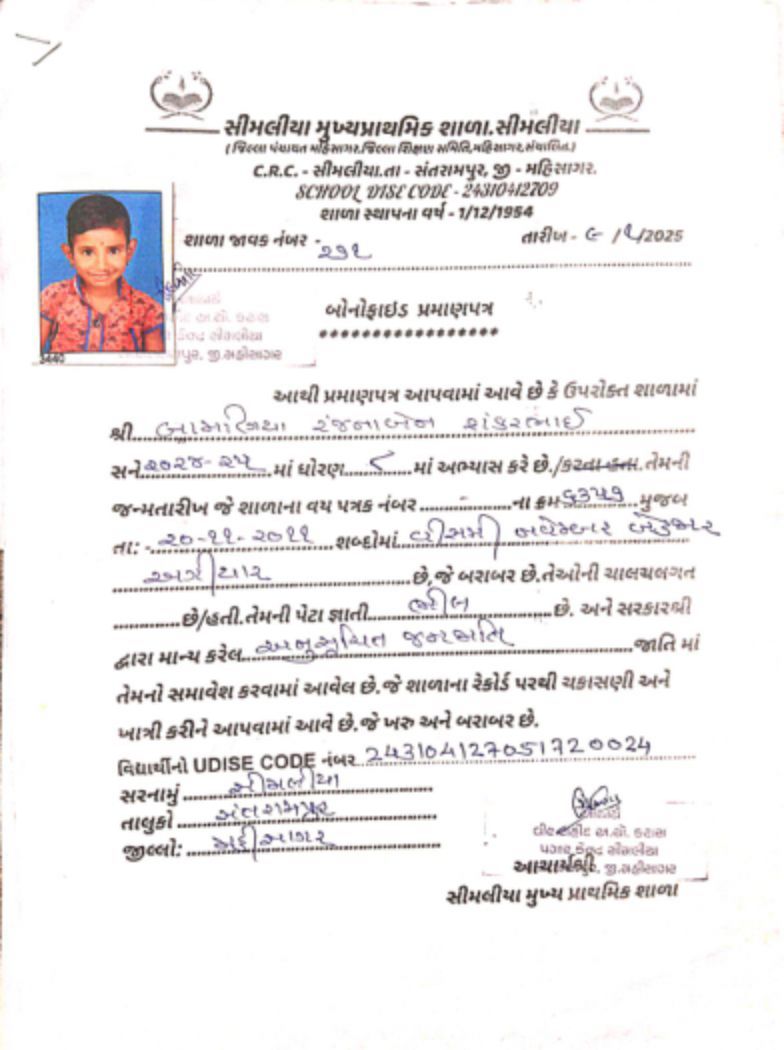 સીમલીયા મુખ્યપ્રાથમિક શાળા.સીમલીયા
( જિલ્લા પંચાયત મહિસાગર.જિલ્લા શિક્ષણ સમિતિ,મહિસાગર,સંચાલિત.)
C.R.C. - સીમલીયા.તા - સંતરામપુર, જી - મહિસાગર.
SCHOOL DISE CODE - 24310412709
શાળા સ્થાપના વર્ષ - 1/12/1954
શાળા જાવક નંબર - તારીખ - ૯ /૧/2025
3440
બોનોફાઇડ પ્રમાણપત્ર
*****************
આથી પ્રમાણપત્ર આપવામાં આવે છે કે ઉપરોક્ત શાળામાં
શ્રી બામણિયા રંજનાબેન શંકરભાઈ
સને ૨૦૨૪-૨૫ માં ધોરણ ૮ માં અભ્યાસ કરે છે./કરતા હતા.તેમની
જન્મતારીખ જે શાળાના વય પત્રક નંબર ના ક્રમ ૬૩૫૧ મુજબ
તા: - ૨૦-૧૧-૨૦૧૧ શબ્દોમાં વીસમી નવેમ્બર બેહજાર
અગીયાર છે,જે બરાબર છે.તેઓની ચાલચલગત
છે/હતી.તેમની પેટા જ્ઞાતી ભીલ છે. અને સરકારશ્રી
દ્વારા માન્ય કરેલ અનુસૂચિત જનજાતિ જાતિ માં
તેમનો સમાવેશ કરવામાં આવેલ છે.જે શાળાના રેકોર્ડ પરથી ચકાસણી અને
ખાત્રી કરીને આપવામાં આવે છે.જે ખરુ અને બરાબર છે.
વિદ્યાર્થીનો UDISE CODE નંબર 243104127051720024
સરનામું સીમલીયા
તાલુકો સંતરામપુર
જીલ્લો: મહીસાગર
આચાર્યશ્રી
સીમલીયા મુખ્ય પ્રાથમિક શાળા